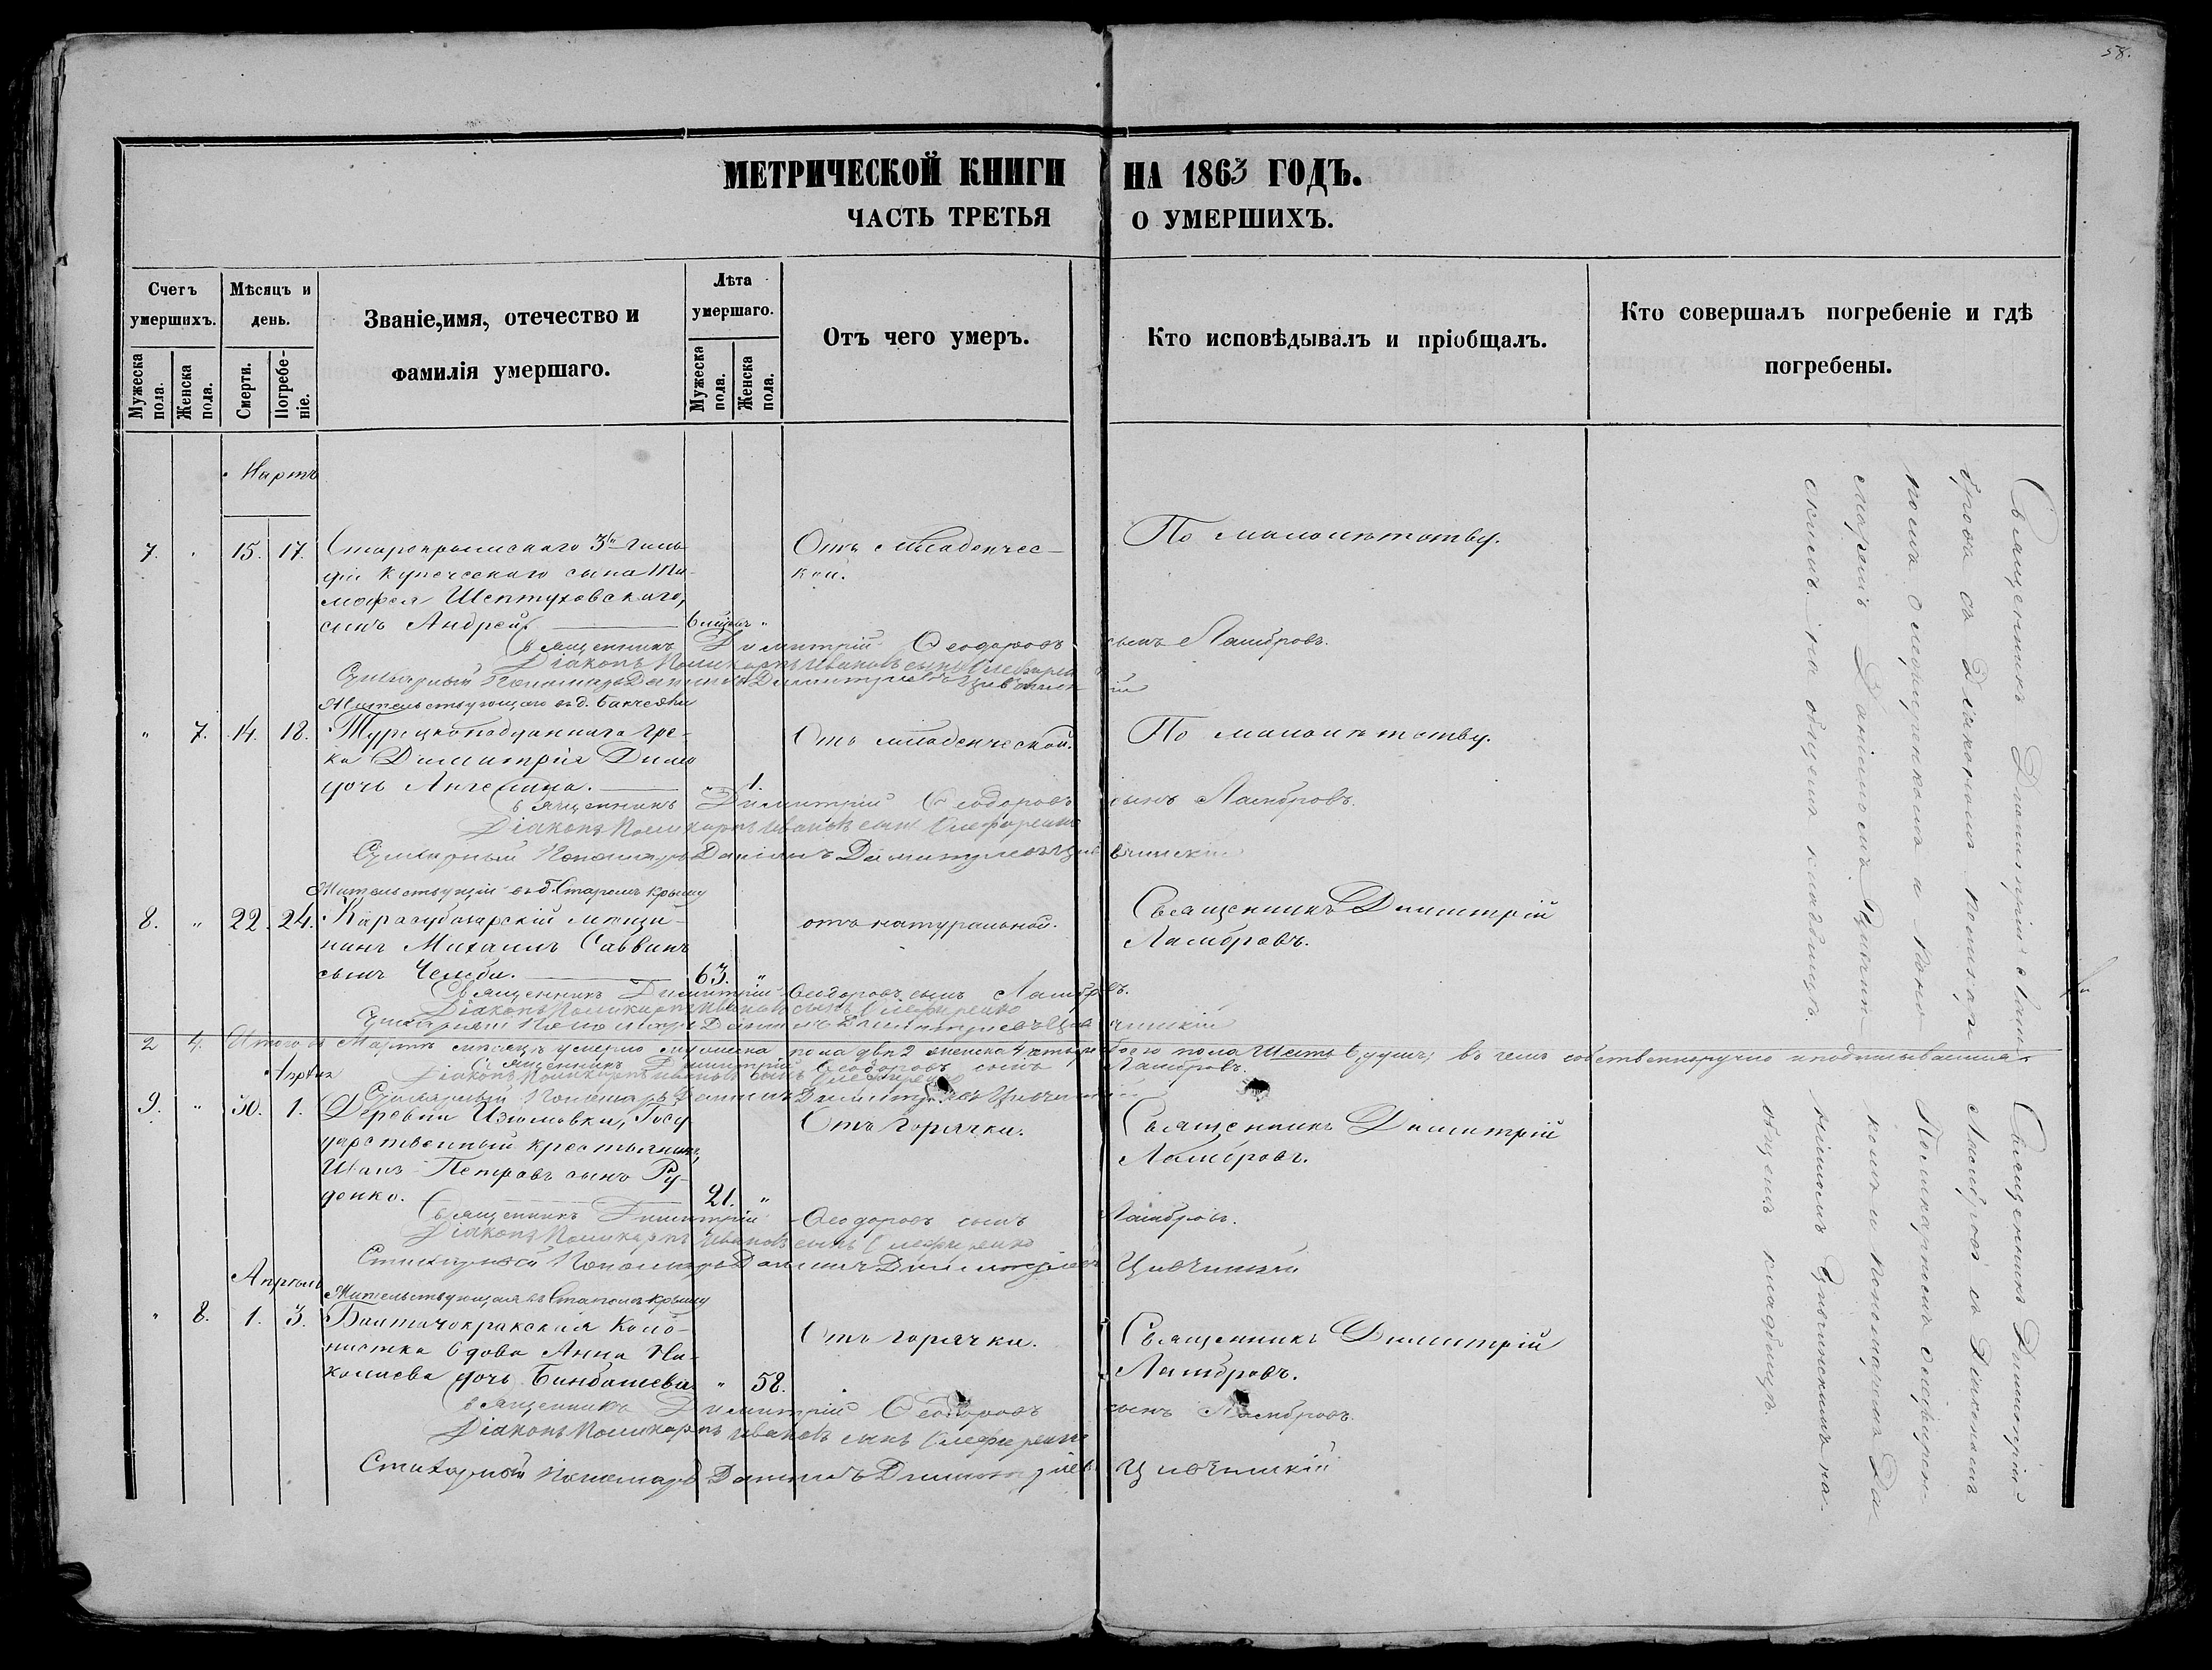 58.
МЕТРИЧЕСКОЙ КНИГИ НА 1863 ГОДЪ.
ЧАСТЬ ТРЕТЬЯ О УМЕРШИХЪ.
Счетъ умершихъ.
Мужеска пола.
Женска пола.
Мѣсяцъ и день.
Смерти.
Погребеніе.
Званіе,имя, отечество и фамилія умершаго.
Лѣта умершаго.
Мужеска пола.
Женска пола.
Отъ чего умеръ.
Кто исповѣдывалъ и пріобщалъ.
Кто совершалъ погребеніе и гдѣ погребены.
Мартъ
7. 15. 17. Старокрымскаго 3й гиль- Отъ младенчес- По малолѣтству.
діи купеческаго сына Ти- кой.
мофея Шептуховскаго,
сынъ Андрей.
Священникъ Димитрій Ѳеодоровъ сынъ Ламбровъ.
Діаконъ Поликарпъ Ивановъ сынъ
Стихарный Пономарь Даніилъ Димитріевъ
Жительствующаго въ д.
" 7. 14. 18. Турецкоподданнаго Гре- Отъ младенческой. По малолѣтству.
ка Димитрія Димо
дочь Ангелина. " 1.
Священникъ Димитрій Ѳеодоровъ сынъ Ламбровъ.
Діаконъ Поликарпъ Ивановъ сынъ
Стихарный Пономарь Даніилъ Димитріевъ
Жительствующій въ г. Старомъ Крыму
8. " 22. 24. Карасубазарскій мѣща- отъ натуральной. Священникъ Димитрій
нинъ Михаилъ Саввинъ Ламбровъ.
сынъ Челеби. 63. "
Священникъ Димитрій Ѳеодоровъ сынъ Ламбровъ.
Діаконъ Поликарпъ Ивановъ сынъ
Стихарный Пономарь Даніилъ Димитріевъ
2 4. Итого въ Мартѣ мѣсяцѣ умерло мужеска пола два 2 женска 4 обоего пола шесть 6 душъ; въ чемъ собственноручно и подписываемся.
Священникъ Димитрій Ѳеодоровъ сынъ Ламбровъ.
Апрѣля
Діаконъ Поликарпъ Ивановъ сынъ
Стихарный Пономарь Даніилъ Димитріевъ
9. " 30. 1. Деревни Изюмовки, Госу- Отъ горячки. Священникъ Димитрій
дарственный крестьянинъ, Ламбровъ.
Иванъ Петровъ сынъ Ру-
денко. 21. "
Священникъ Димитрій Ѳеодоровъ сынъ Ламбровъ.
Діаконъ Поликарпъ Ивановъ сынъ
Стихарный Пономарь Даніилъ Димитріевъ
Апрѣль
Жительствующая въ Старомъ Крыму
" 8. 1. 3. Коло- Отъ горячки. Священникъ Димитрій
нистка вдова Анна Ни- Ламбровъ.
колаева дочь " 58.
Священникъ Димитрій Ѳеодоровъ сынъ Ламбровъ.
Діаконъ Поликарпъ Ивановъ сынъ
Стихарный Пономарь Даніилъ Димитріевъ
Священникъ Димитрій Лам-
бровъ съ Діакономъ Поликар-
помъ и Поно-
маремъ Данииломъ
на общемъ кладбищѣ.
Священникъ Димитрій
Ламбровъ съ Діакономъ
Поликарпомъ
комъ и Пономаремъ Да-
ніиломъ на
общемъ кладбищѣ.